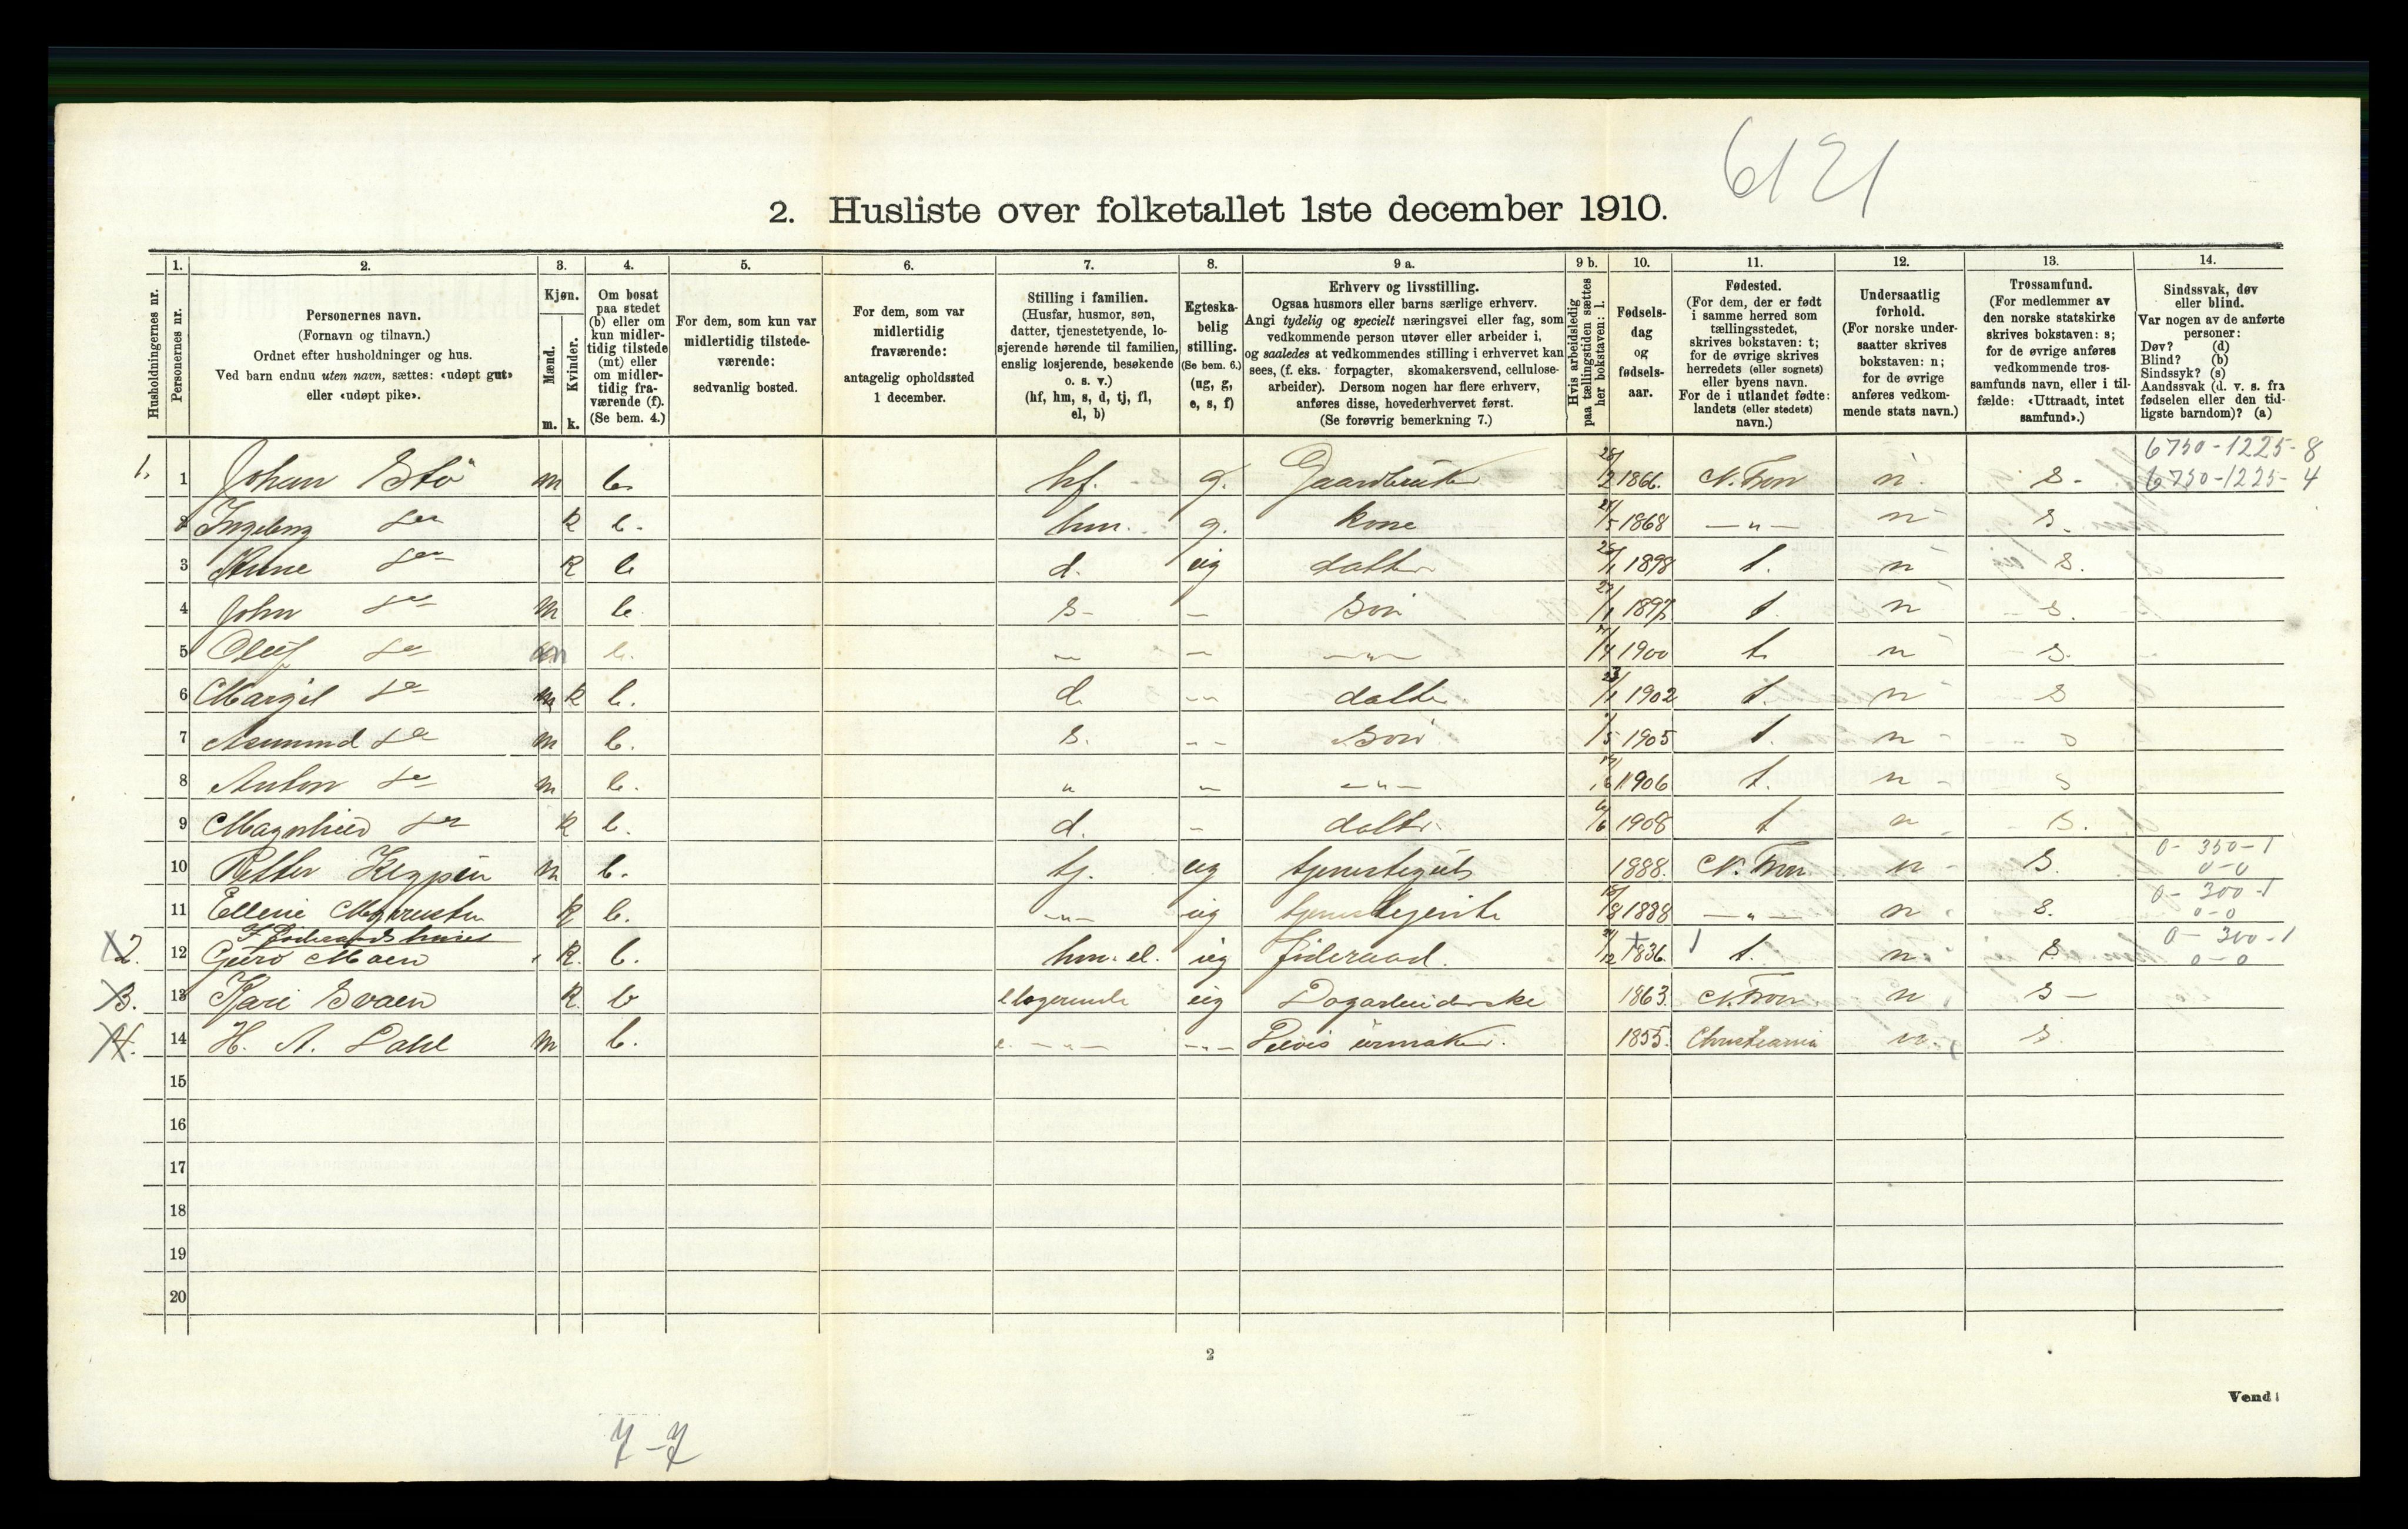 6121
2. Husliste over folketallet 1ste december 1910.
Husholdningernes nr.
1. Personernes nr.
2. Personernes navn.
(Fornavn og tilnavn.)
Ordnet efter husholdninger og hus.
Ved barn endnu uten navn, sættes: «udøpt gut»
eller «udøpt pike».
3. Kjøn.
Mænd. Kvinder.
m. k.
4. Om bosat
paa stedet
(b) eller om
kun midler-
tidig tilstede
(mt) eller
om midler-
tidig fra-
værende (f).
(Se bem. 4.)
5. For dem, som kun var
midlertidig tilstede-
værende:
sedvanlig bosted.
6. For dem, som var
midlertidig
fraværende:
antagelig opholdssted
1 december.
7. Stilling i familien.
(Husfar, husmor, søn,
datter, tjenestetyende, lo-
sjerende hørende til familien,
enslig losjerende, besøkende
o. s. v.)
(hf, hm, s, d, tj, fl,
el, b)
8. Egteska-
belig
stilling.
(Se bem. 6.)
(ug, g,
e, s, f)
9 a. Erhverv og livsstilling.
Ogsaa husmors eller barns særlige erhverv.
Angi tydelig og specielt næringsvei eller fag, som
vedkommende person utøver eller arbeider i,
og saaledes at vedkommendes stilling i erhvervet kan
sees, (f. eks. forpagter, skomakersvend, cellulose-
arbeider). Dersom nogen har flere erhverv,
anføres disse, hovederhvervet først.
(Se forøvrig bemerkning 7.)
9 b. Hvis arbeidsledig
paa tællingstiden sættes
her bokstaven: l.
10. Fødsels-
dag
og
fødsels-
aar.
11. Fødested.
(For dem, der er født
i samme herred som
tællingsstedet,
skrives bokstaven: t;
for de øvrige skrives
herredets (eller sognets)
eller byens navn.
For de i utlandet fødte:
landets (eller stedets)
navn.)
12. Undersaatlig
forhold.
(For norske under-
saatter skrives
bokstaven: n;
for de øvrige
anføres vedkom-
mende stats navn.)
13. Trossamfund.
(For medlemmer av
den norske statskirke
skrives bokstaven: s;
for de øvrige anføres
vedkommende tros-
samfunds navn, eller i til-
fælde: «Uttraadt, intet
samfund».)
14. Sindssvak, døv
eller blind.
Var nogen av de anførte
personer:
Døv? (d)
Blind? (b)
Sindssyk? (s)
Aandssvak (d. v. s. fra
fødselen eller den tid-
ligste barndom)? (a)
6750-1225-8
1. 1 Johan Stø m b. hf. g. Gaardbruker 1866. N. Fron n. s. 6750-1225-4
2 Ingeborg k b. hm. g. kone 1868 —„— n s.
3 k b d. ug datter 1898 t. n s.
4 John m b s — Søn 1897 t. n s.
5 Oluf m b. —„— 1900 t. n s.
6 Margit k b. d. datter 1902 t. n s
7 Asmund m b. s. Søn 1905 t. n s
8 Anton m b. „ —„— 1906 t. n s
9 Magnhild k b. d. datter 1908 t n s.
0-350-1
10 Petter m b. tj. ug tjenestegut 1888. N. Fron n s. 0-0
0-300-1
11 k b. —„— ug tjenestejente 1888 —„— n s. 0-0
0-300-1
2. 12 Guro Moen k. b. hm. el. ug Føderaad. 1836. t. n. s 0-0
3. 13 Kari k. b ug 1863. N. Fron n s —
4. 14 H. A. Dahl m b. —„— —„— urmaker. 1855. Christiania n. s
15
16
17
18
19
20
2
Vend!
7-7